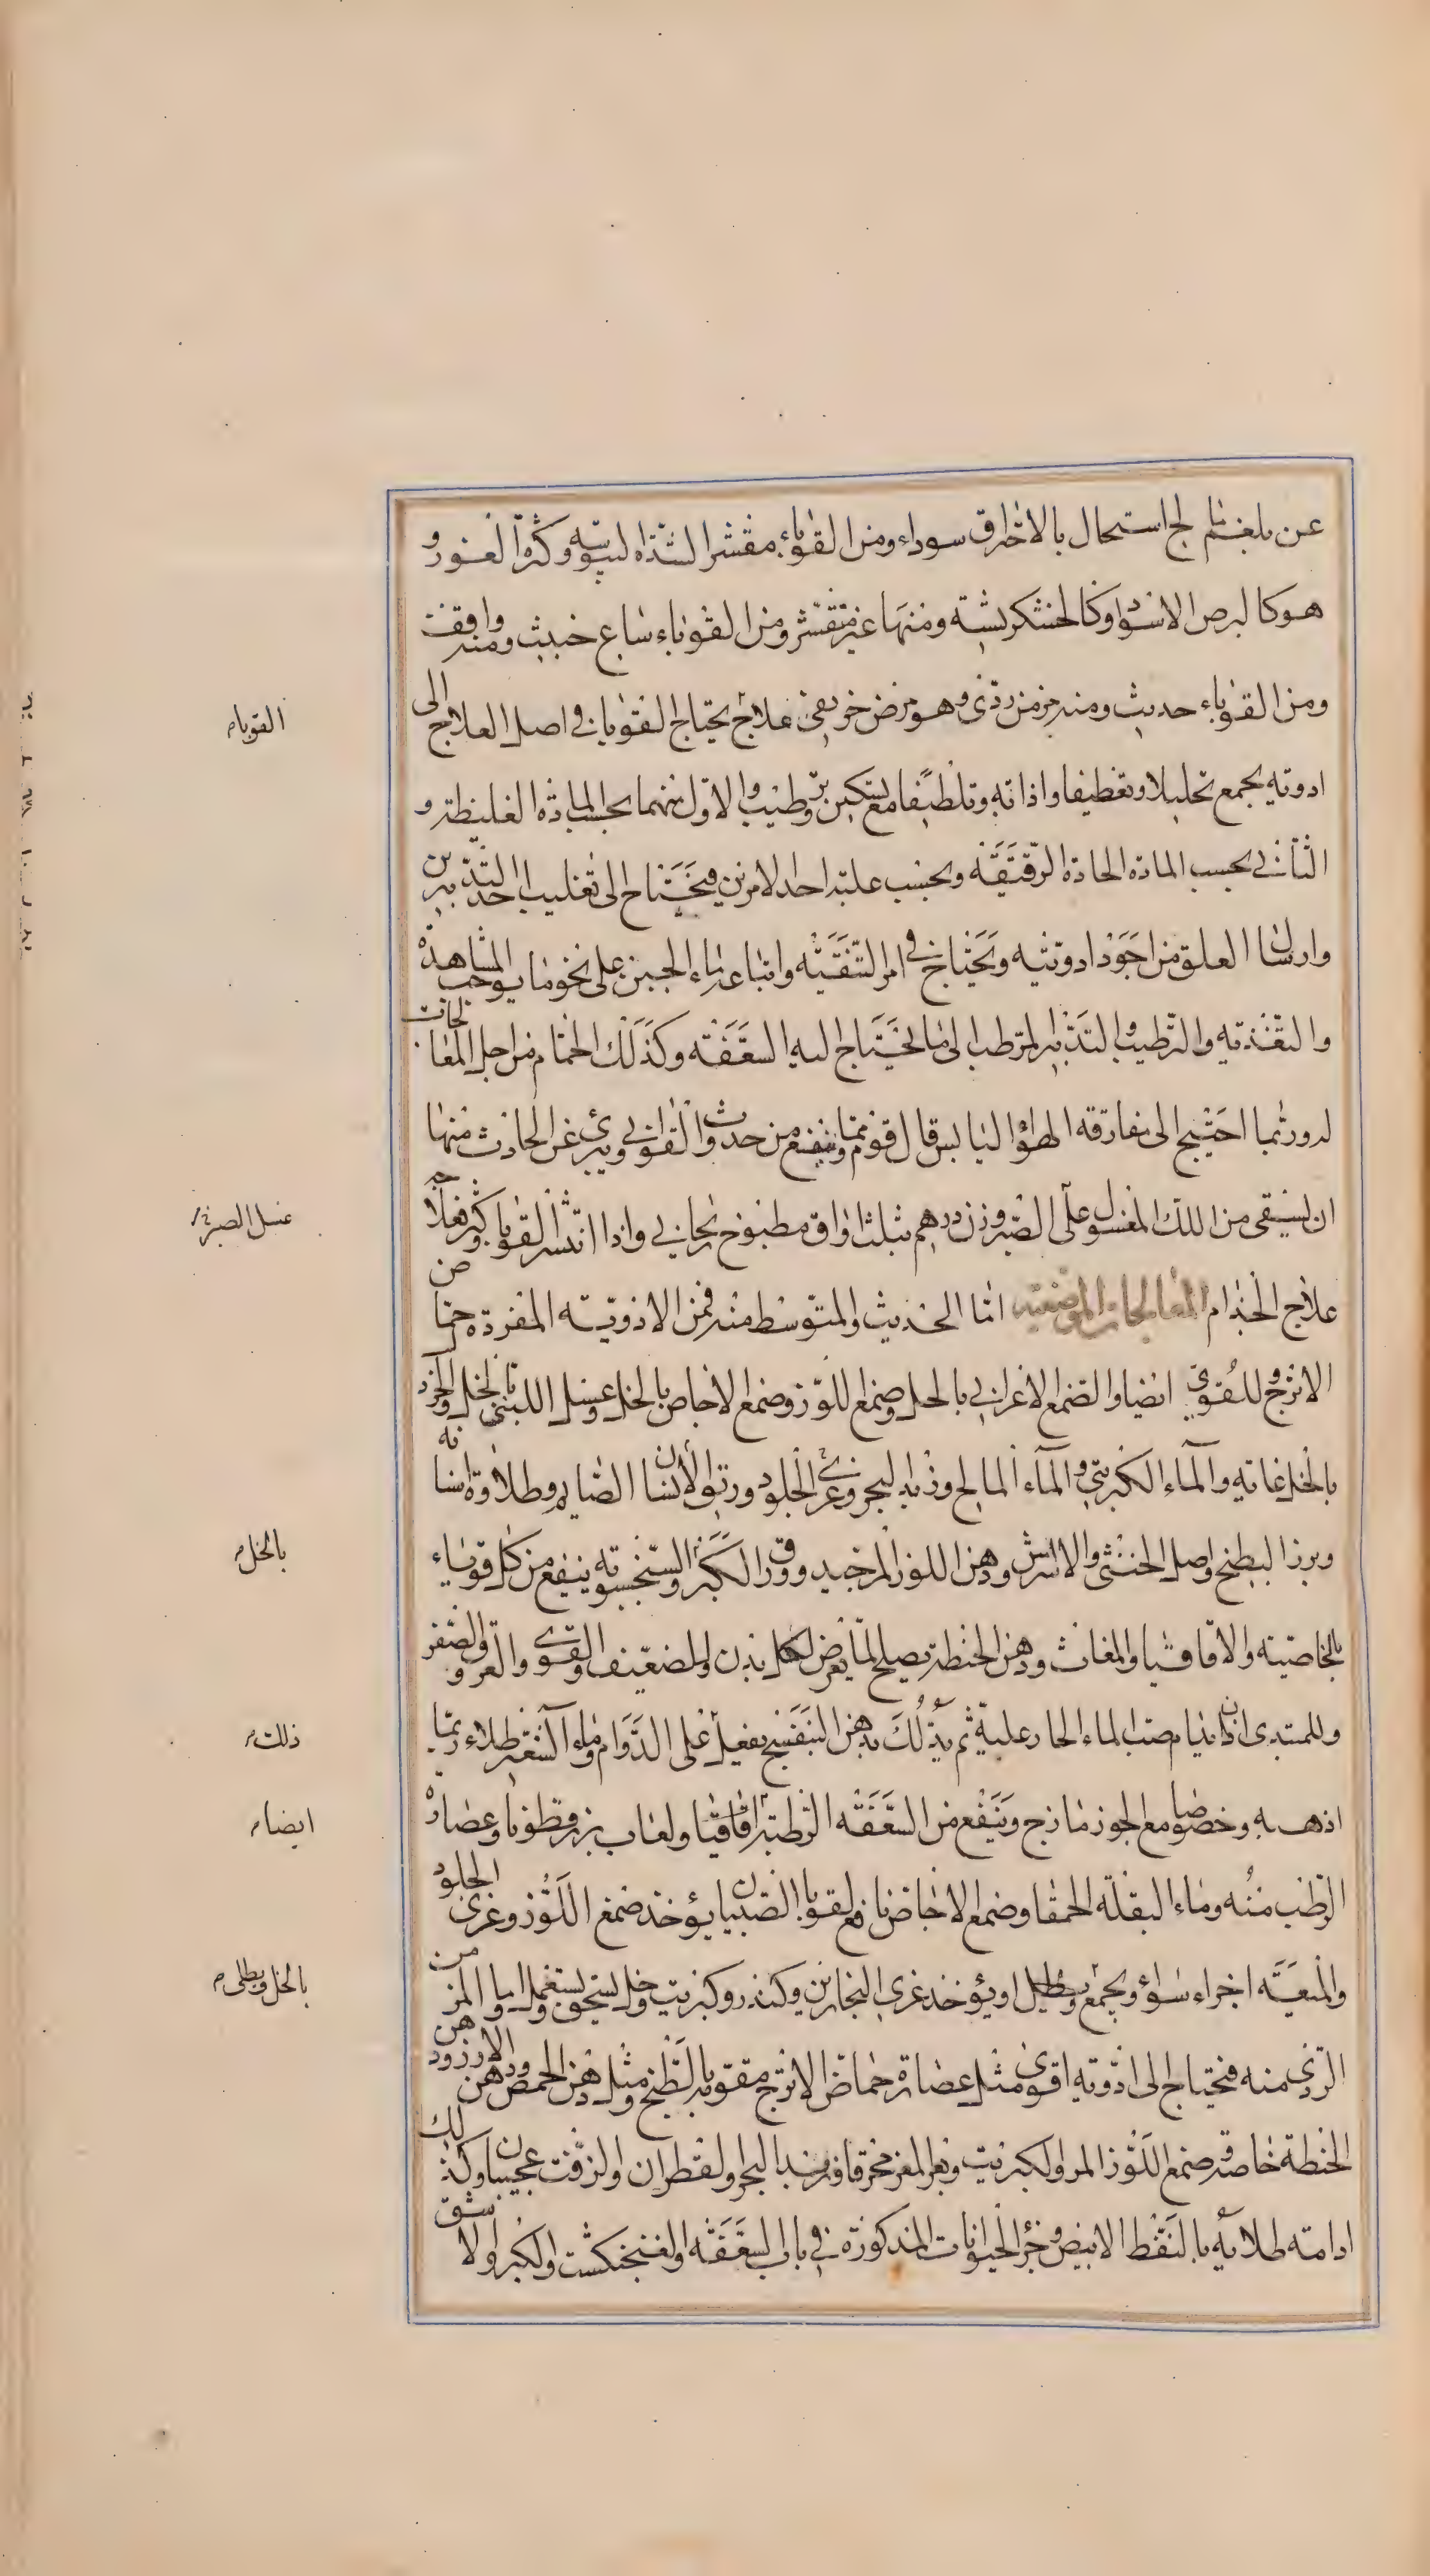 عن بلغم مالح استحال بالاحتراق سوداء ومن القوباء مقشر لشدة اليبوسة وكثرة الغور و
هو كالبرص الاسود او كالخشكريشة ومنها غير متقشر ومن القوباء ساع خبيث ومنه واقف
ومن القوباء حديث ومنه مزمن ردى وهو مرض خريفى علاج يحتاج القوبا في اصل العلاج الى
ادوية يجمع تحليلا وتقطيفا واذابة وتلطيفا مع تسكين وترطيب والاول منهما بحسب المادة الغليظة و
الثاني بحسب المادة الحادة الرقيقة وبحسب غلبة احد الامرين فيحتاج الى تغليب احد التدبيرين
وارسال العلق من اجود ادويته ويحتاج في امر التنقية واتباعه بماء الجبن على نحو ما يوجب المشاهدة
والتغذية والترطيب والتدبير المرطب الى ما يحتاج اليه السعفة وكذلك الحمام من اجل المعالجات
له وربما احتيج الى مفارقة الهواء اليابس قال قوم مما ينفع من حدوث القوابي ويبرئ عن الحادث منها
ان يسقى من اللك المغسول على الصبر وزن درهم بثلث اواق مطبوخ ريحاني واذا انتشر القوبا وكثر فعلاجه
علاج الجذام المعالجات الموضعية اما الحديث والمتوسط منه فمن الادوية المفردة حماض
الاترج وللقوي ايضا والصمغ الاعرابي بالخل وصمغ اللوز وصمغ الاجاص بالخل وعسل اللبنى بالخل والخرد
بالخل غاية والماء الكبريتي والماء المالح وزبد البحر وغرى الجلود وريق الانسان الصايم وطلاوة اسنانه
وبرز البطيخ واصل الخنثى والاشراس ودهن اللوز المر جيد وورق الكبر والسنجسبويه ينفع من كل قوباء
بالخاصية والاقاقيا والمغاث ودهن الحنطة يصلح لما يعرض لكل بدن وللضعيف والقوى والعروق الصفر
وللمبتدى ان يدام صب الماء الحار عليه ثم يدلك بدهن البنفسج يفعل على الدوام وماء الشعير طلاء ربما
اذهب به وخصوصا مع الجوز مازج وينفع من السعفة الرطبة اقاقيا ولعاب بزر قطونا وعصارة
الرطب منه وماء البقلة الحمقا وصمغ الاجاص نافع لقوبا الصبيان يؤخذ صمغ اللوز وغرى الجلود
والميعة اجزاء سواء ويجمع ويطلى او يؤخذ غرى النجارين وكندر وكبريت وخل يسحق ويستعمل واما المزمن
الردى منه فيحتاج الى ادوية اقوى مثل عصارة حماض الاترج مقومة بالطبخ ومثل دهن الحمص ودهن الارز ودهن
الحنطة خاصة صمغ اللوز المر والكبريت وبعر المعز محرقا وزبد البحر والقطران والزفت عجيبان وكذلك
ادامة طلائه بالنفط الابيض وخرء الحيوانات المذكورة في باب السعفة والفنجنكشت والكبر والاشق
القوبا
غسل الصبر
بالخل
ذلك
ايضا
بالخل ويطلى